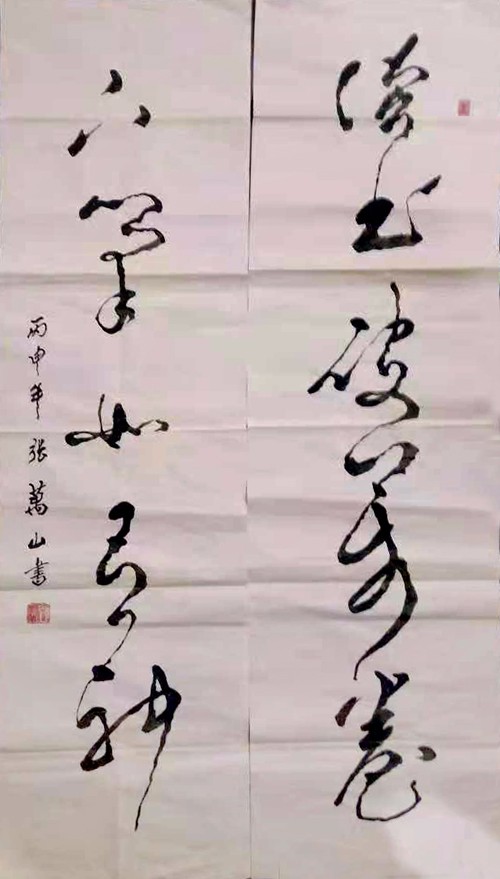 读书破万卷
下笔如有神
丙申年 张萬山書